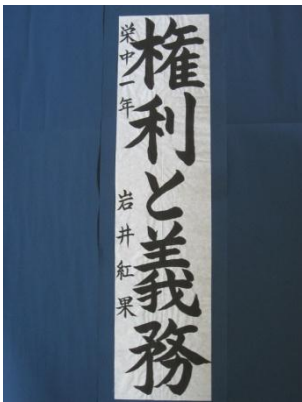 権利と義務
栄中一年 岩井紅果